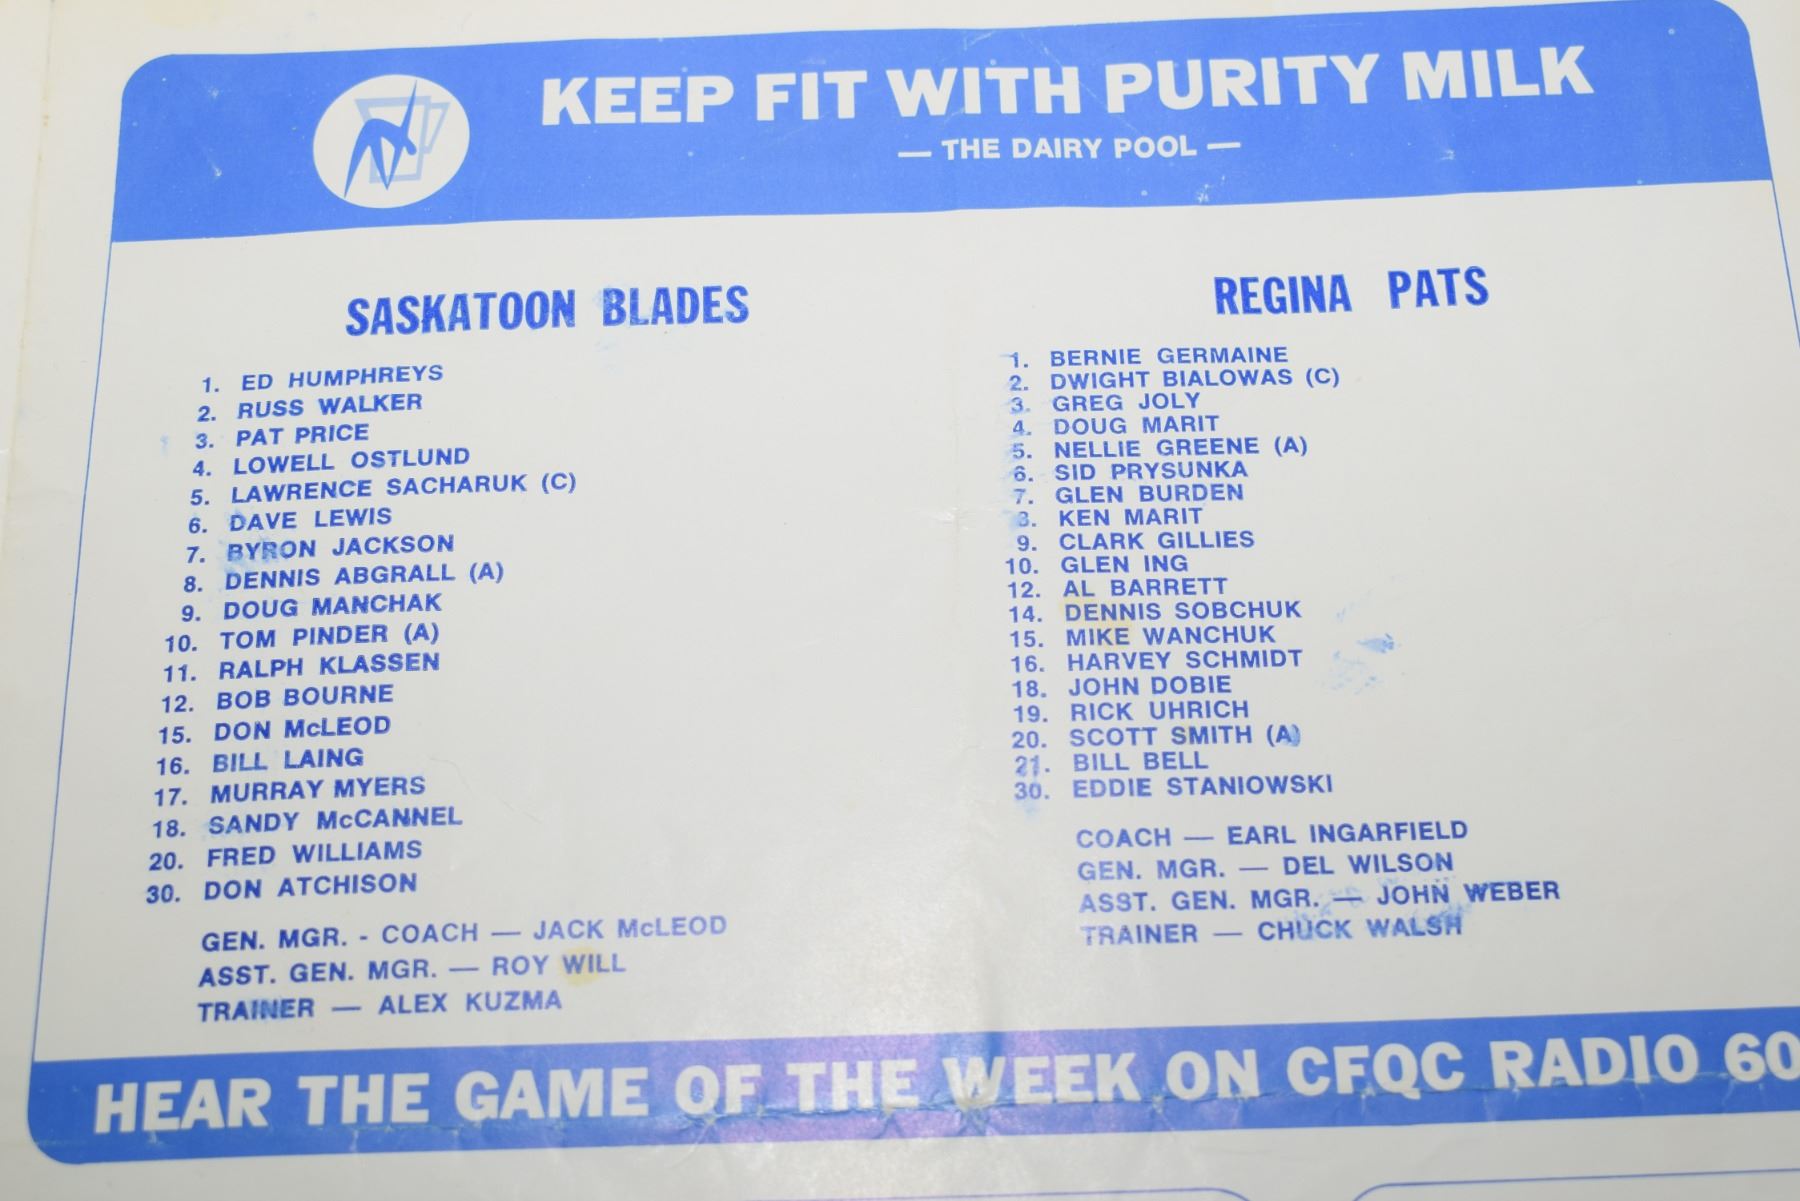 KEEP FIT WITH PURITY MILK
— THE DAIRY POOL —
SASKATOON BLADES
1. ED HUMPHREYS
2. RUSS WALKER
3. PAT PRICE
4. LOWELL OSTLUND
5. LAWRENCE SACHARUK (C)
6. DAVE LEWIS
7. BYRON JACKSON
8. DENNIS ABGRALL (A)
9. DOUG MANCHAK
10. TOM PINDER (A)
11. RALPH KLASSEN
12. BOB BOURNE
15. DON McLEOD
16. BILL LAING
17. MURRAY MYERS
18. SANDY McCANNEL
20. FRED WILLIAMS
30. DON ATCHISON
GEN. MGR. - COACH — JACK McLEOD
ASST. GEN. MGR. — ROY WILL
TRAINER — ALEX KUZMA
REGINA PATS
1. BERNIE GERMAINE
2. DWIGHT BIALOWAS (C)
3. GREG JOLY
4. DOUG MARIT
5. NELLIE GREENE (A)
6. SID PRYSUNKA
7. GLEN BURDEN
8. KEN MARIT
9. CLARK GILLIES
10. GLEN ING
12. AL BARRETT
14. DENNIS SOBCHUK
15. MIKE WANCHUK
16. HARVEY SCHMIDT
18. JOHN DOBIE
19. RICK UHRICH
20. SCOTT SMITH (A)
21. BILL BELL
30. EDDIE STANIOWSKI
COACH — EARL INGARFIELD
GEN. MGR. — DEL WILSON
ASST. GEN. MGR. — JOHN WEBER
TRAINER — CHUCK WALSH
HEAR THE GAME OF THE WEEK ON CFQC RADIO 60